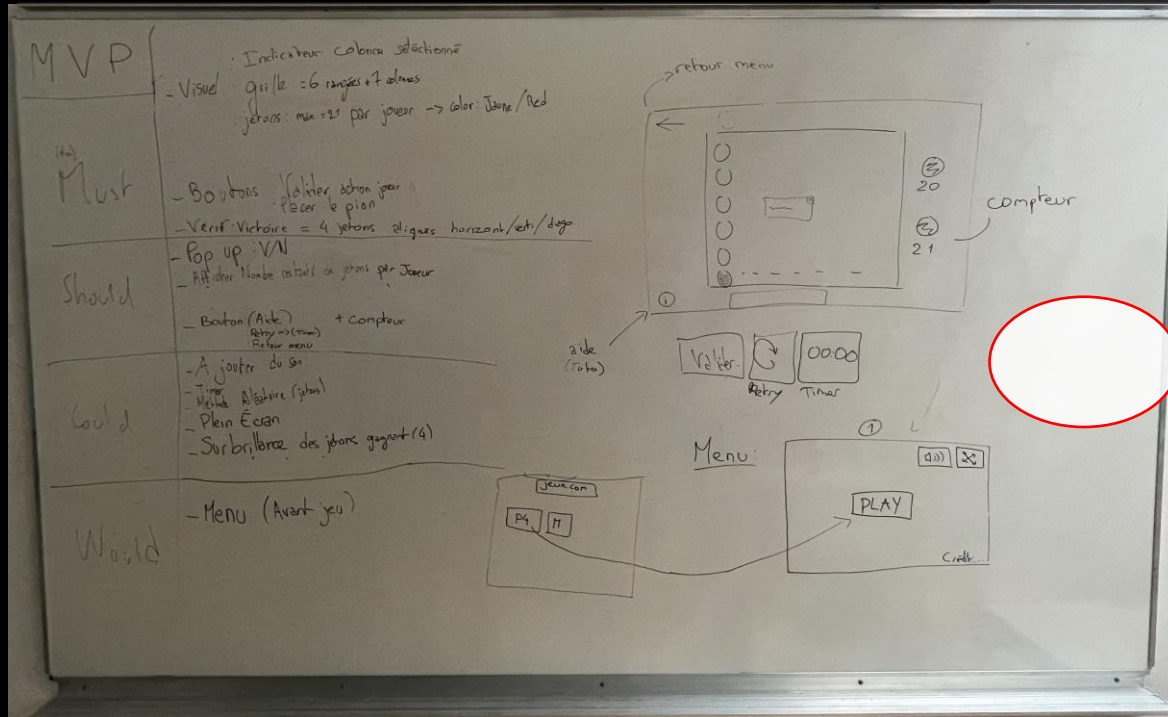 MVP
. Indicateur colonne sélectionné
- Visuel . grille = 6 rangées + 7 colonnes
. jetons : max = 21 par joueur -> color : Jaune/Red
Must
- Boutons . Valider action jouer
. Placer le pion
- Verif : Victoire = 4 jetons alignés horizont/verti/diago
Should
- Pop up : V/N
- Afficher Nombe restant de jetons par Joueur
- Bouton (Aide) + Compteur
. Retry -> (Timer)
. Retour menu
Could
- Ajouter du son
- Timer
- Methode Aléatoire (jetons)
- Plein Écran
- Surbrillance des jetons gagnant (4)
Would
- Menu (Avant jeu)
retour menu
20
21
compteur
i
aide
(Tuto)
Valider
Retry
00:00
Timer
Menu :
jeux.com
P4
M
1
PLAY
Crédit...